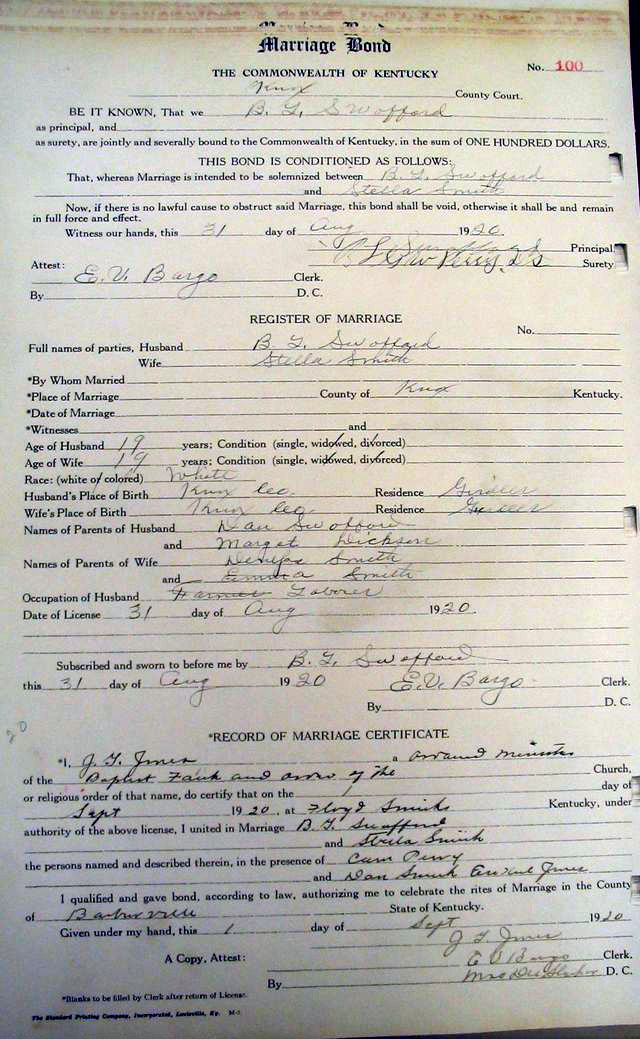 Marriage Bond
Marriage Bond
No. 100
THE COMMONWEALTH OF KENTUCKY
Knox County Court.
BE IT KNOWN, That we B. F. Swofford
as principal, and
as surety, are jointly and severally bound to the Commonwealth of Kentucky, in the sum of ONE HUNDRED DOLLARS.
THIS BOND IS CONDITIONED AS FOLLOWS:
That, whereas Marriage is intended to be solemnized between B. F. Swofford
and Stella Smith
Now, if there is no lawful cause to obstruct said Marriage, this bond shall be void, otherwise it shall be and remain
in full force and effect.
Witness our hands, this 31 day of Aug 1920.
Principal
Surety
Attest: E. V. Bargo Clerk.
By D. C.
REGISTER OF MARRIAGE
No.
Full names of parties, Husband B. F. Swofford
Wife Stella Smith
*By Whom Married
*Place of Marriage County of Knox Kentucky.
*Date of Marriage
*Witnesses and
Age of Husband 19 years; Condition (single, widowed, divorced)
Age of Wife 19 years; Condition (single, widowed, divorced)
Race: (white or colored) White
Husband's Place of Birth Knox Co. Residence Girdler
Wife's Place of Birth Knox Co Residence Girdler
Names of Parents of Husband Dan Swofford
and Marget Dickson
Names of Parents of Wife Smith
and Emma Smith
Occupation of Husband Farmer Laborer
Date of License 31 day of Aug 1920.
Subscribed and sworn to before me by B. F. Swofford
this 31 day of Aug 1920 E. V. Bargo Clerk.
By D. C.
20
*RECORD OF MARRIAGE CERTIFICATE
*I, J. F. Jones a minister
of the Baptist of the Church,
or religious order of that name, do certify that on the 1 day of
Sept 1920, at Floyd Smiths Kentucky, under
authority of the above license, I united in Marriage B. F. Swofford
and Stella Smith
the persons named and described therein, in the presence of Cam
and Dan Smith Jones
I qualified and gave bond, according to law, authorizing me to celebrate the rites of Marriage in the County
of Barbourville State of Kentucky.
Given under my hand, this 1 day of Sept 1920
J F Jones
A Copy, Attest: E V Bargo Clerk.
By D. C.
*Blanks to be filled by Clerk after return of License.
The Standard Printing Company, Incorporated, Louisville, Ky.